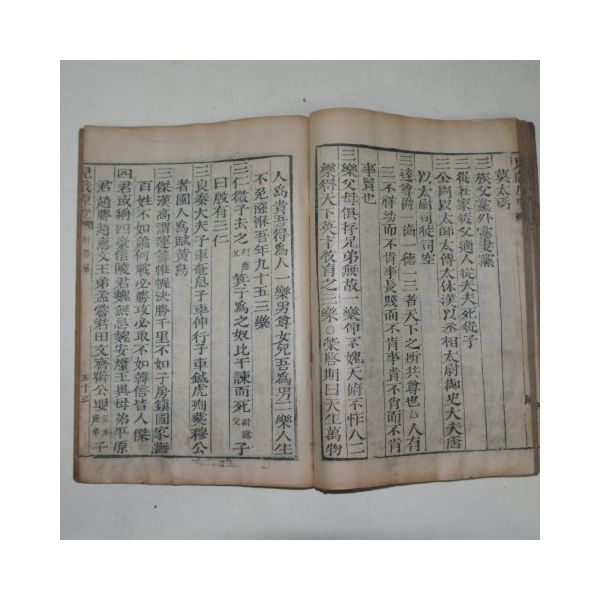 莫太焉
三族父黨外黨妻黨
三從在家從父適人從夫夫死從子
三公周以太師太傅太休漢以丞相太尉御史大夫唐
以太尉司徒司空
三達尊爵一齒一德一三者天下之所共尊也○人有
三不祥幼而不肯事長賤而不肯事貴不肖而不肯
事賢也
三樂父母俱存兄弟無故一樂仰不愧天俯不怍人二
樂得天下英才敎育之三樂○榮啓期曰天生萬物
人爲貴吾得爲人一樂男尊女卑吾爲男二樂人生
不免襁褓吾年九十五三樂
三仁微子去之 箕子爲之奴比干諫而死 子
曰殷有三仁
三良秦大夫子車奄息子車仲行子車鍼虎殉葬穆公
者國人爲賦黃鳥
三傑漢高謂運籌帷幄決勝千里不如子房鎭國家撫
百姓不如蕭何戰必勝攻必取不如韓信皆人傑
四君或稱四豪信陵君魏無忌魏安釐王異母弟平原
君趙勝趙惠文王弟孟嘗君田文齊 公 子
五十三